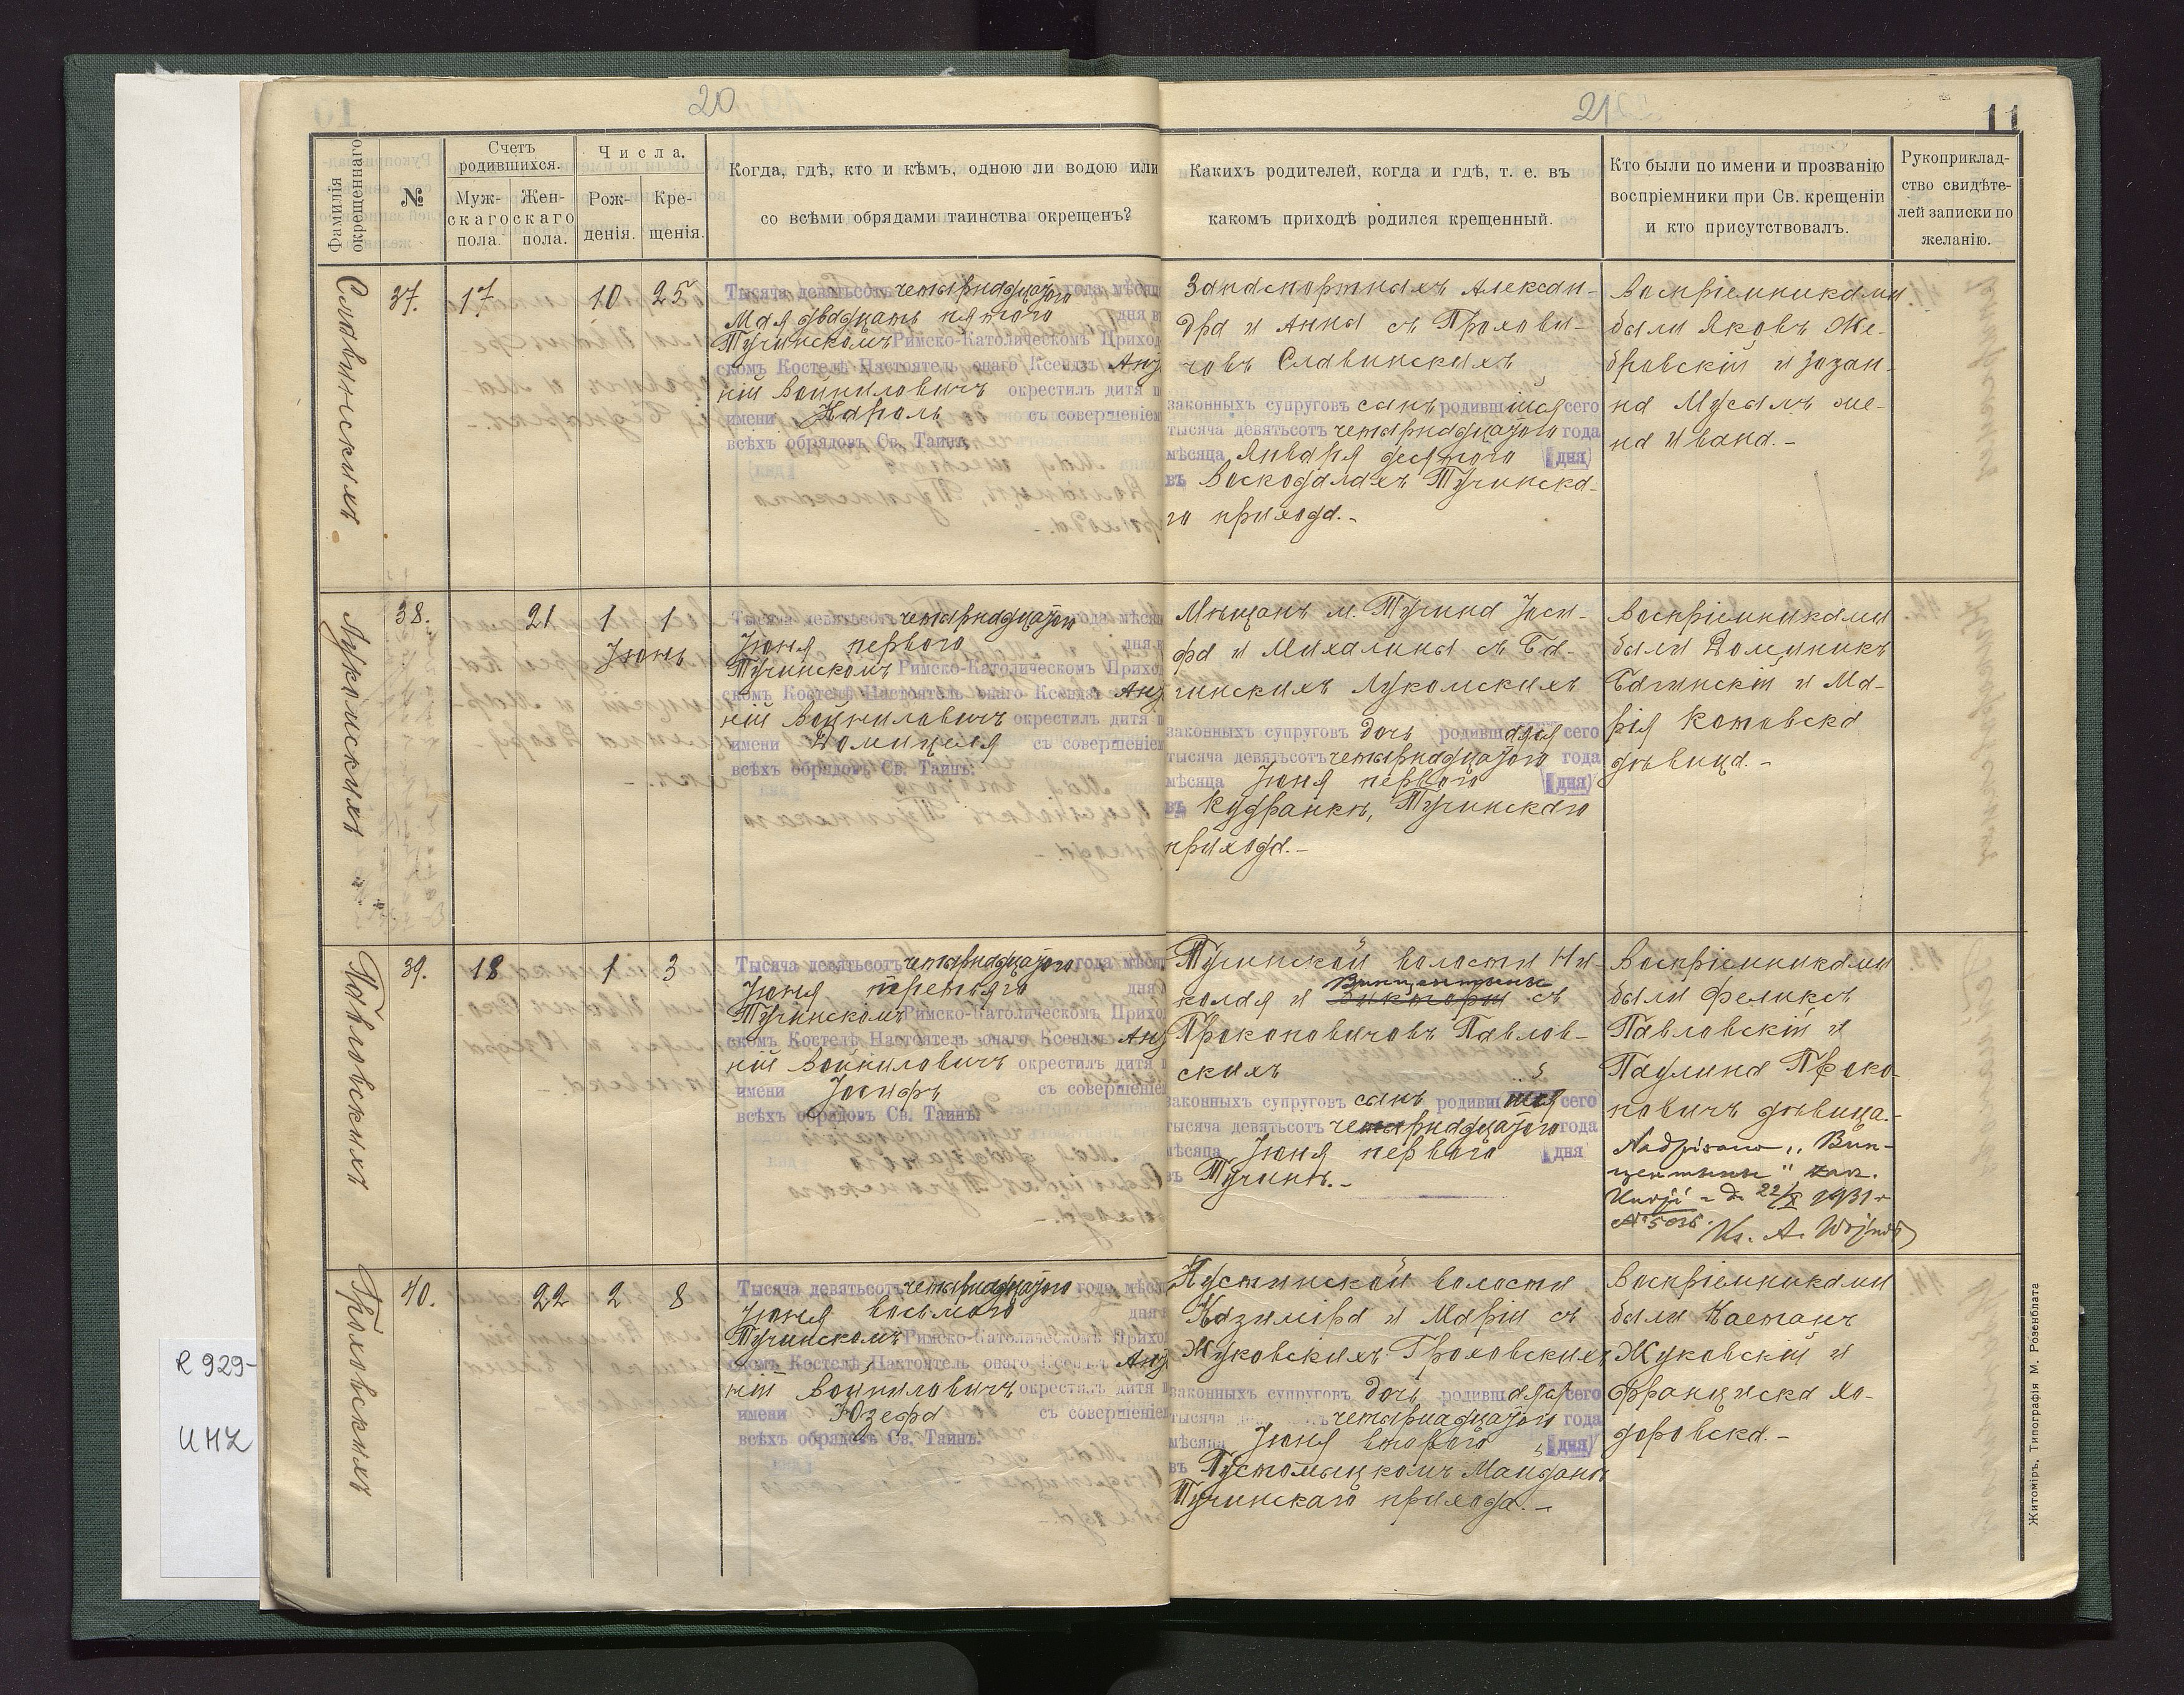 20
21
11
Фамилія окрещеннаго
№
Счетъ родившихся.
Муж-скаго пола.
Жен-скаго пола.
Числа.
Рож-денія.
Кре-щенія.
Когда, гдѣ, кто и кѣмъ, одною ли водою или
со всѣми обрядами таинства окрещенъ?
Какихъ родителей, когда и гдѣ, т. е. въ
какомъ приходѣ родился крещенный.
Кто были по имени и прозванію
воспріемники при Св. крещеніи
и кто присутствовалъ.
Рукоприклад-
ство свидѣте-
лей записки по
желанію.
Славинскихъ
37.
17
10
25
Тысяча девятьсотъ четырнадцатого года мѣсяц
Мая двадцать пятого дня в
Тучинскомъ Римско-Католическомъ Приход
скомъ Костелѣ Настоятель онаго Ксендзъ Анд
ній Войниловичъ окрестилъ дитя п
имени Кароль съ совершеніем
всѣхъ обрядовъ Св. Таинъ.
Запаспортныхъ Алексан-
дра и Анны съ Прохови-
човъ Славинскихъ
законныхъ супруговъ сынъ родившійся сего
тысяча девятьсотъ четырнадцатого года
мѣсяца Января десятого (дня)
въ Воскодавахъ Тучинска-
го прихода.-
Воспріемниками
были Яковъ Же-
бровскій и Зузан-
на Мусалъ же-
на Ивана.-
Лукомскихъ
38.
21
1
1
Іюнь
Тысяча девятьсотъ четырнадцатого года мѣсяц
Іюня первого дня в
Тучинскомъ Римско-Католическомъ Приход
скомъ Костелѣ Настоятель онаго Ксендзъ Анд
ній Войниловичъ окрестилъ дитя п
имени Домицеля съ совершеніем
всѣхъ обрядовъ Св. Таинъ.
Мѣщанъ м. Тучина Іоси-
фа и Михалины съ Ба-
гинскихъ Лукомскихъ
законныхъ супруговъ дочь родившаяся сего
тысяча девятьсотъ четырнадцатого года
мѣсяца Іюня первого (дня)
въ Кудранкѣ, Тучинскаго
прихода.-
Воспріемниками
были Доминикъ
Багинскій и Ма-
рія Котовска
дѣвица.-
Павловскихъ
39.
18
1
3
Тысяча девятьсотъ четырнадцатого года мѣсяц
Іюня третьяго дня
Тучинскомъ Римско-Католическомъ Прихо
скомъ Костелѣ Настоятель онаго Ксендзъ Анд
ній Войниловичъ окрестилъ дитя п
имени Іосифъ съ совершеніе
всѣхъ обрядовъ Св. Таинъ.
Тучинской волости Ни-
Винцентины
колая и Викторіи съ
Прокоповичовъ Павлов-
скихъ
законныхъ супруговъ сынъ родившійся сего
тысяча девятьсотъ четырнадцатого года
мѣсяца Іюня первого дня
въ Тучинѣ.-
Воспріемниками
были Феликсъ
Павловскій и
Паулина Проко-
повичъ дѣвица.-
Nadpisano „Вин-
центины"
Kurji z d. 22/X 1931 r
№ 5036. Ks. A.
Гроховскихъ
40.
22
2
8
Тысяча девятьсотъ четырнадцатого года мѣсяц
Іюня восьмого дня
Тучинскомъ Римско-Католическомъ Прихо
скомъ Костелѣ Настоятель онаго Ксендзъ Анд
ній Войниловичъ окрестилъ дитя п
имени Юзефа съ совершеніем
всѣхъ обрядовъ Св. Таинъ.
Кустинской волости
Казиміра и Маріи съ
Жуковскихъ Гроховскихъ
законныхъ супруговъ дочь родившаяся сего
тысяча четырнадцатого года
мѣсяца Іюня второго (дня)
въ Пустомыцкомъ Майданѣ
Тучинскаго прихода.-
Воспріемниками
были Каетанъ
Жуковскій и
Франциска Хо-
доровска.-
Житоміръ, Типографія М. Розенблата
R 929-
UMZ